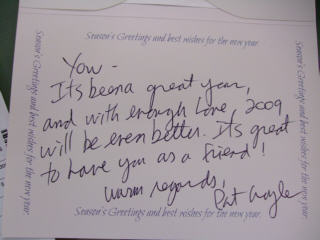 Season's Greetings and best wishes for the new year.
Season's Greetings and best wishes for the new year.
Season's Greetings and best wishes for the new year.
You -
Its been a great year,
and with enough love, 2009
will be even better. It's great
to have you as a friend!
warm regards,
Pat
Season's Greetings and best wishes for the new year.